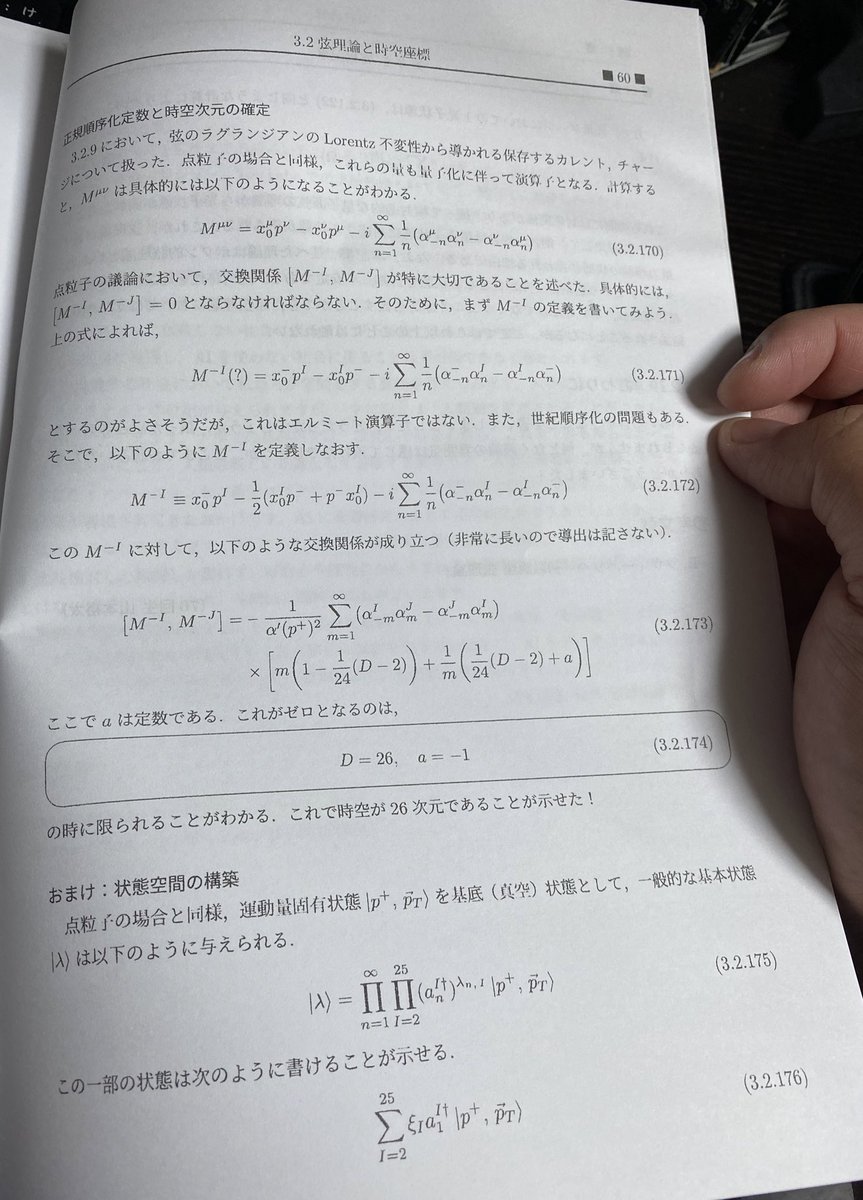 3.2 弦理論と時空座標
■ 60 ■
正規順序化定数と時空次元の確定
3.2.9において，弦のラグランジアンの Lorentz 不変性から導かれる保存するカレント，チャー
ジについて扱った．点粒子の場合と同様，これらの量も量子化に伴って演算子となる．計算する
と，M^{μν} は具体的には以下のようになることがわかる．
M^{μν} = x_0^μ p^ν − x_0^ν p^μ − i∑_{n=1}^{∞} \frac{1}{n}(α_{−n}^μ α_n^ν − α_{−n}^ν α_n^μ) (3.2.170)
点粒子の議論において，交換関係 [M^{−I}, M^{−J}] が特に大切であることを述べた．具体的には，
[M^{−I}, M^{−J}] = 0 とならなければならない．そのために，まず M^{−I} の定義を書いてみよう．
上の式によれば，
M^{−I}(?) = x_0^− p^I − x_0^I p^− − i∑_{n=1}^{∞} \frac{1}{n}(α_{−n}^− α_n^I − α_{−n}^I α_n^−) (3.2.171)
とするのがよさそうだが，これはエルミート演算子ではない．また，世紀順序化の問題もある．
そこで，以下のように M^{−I} を定義しなおす．
M^{−I} ≡ x_0^− p^I − \frac{1}{2}(x_0^I p^− + p^− x_0^I) − i∑_{n=1}^{∞} \frac{1}{n}(α_{−n}^− α_n^I − α_{−n}^I α_n^−) (3.2.172)
この M^{−I} に対して，以下のような交換関係が成り立つ（非常に長いので導出は記さない）．
[M^{−I}, M^{−J}] = − \frac{1}{α′(p^+)^2} ∑_{m=1}^{∞} (α_{−m}^I α_m^J − α_{−m}^J α_m^I) (3.2.173)
× [m(1 − \frac{1}{24}(D − 2)) + \frac{1}{m}(\frac{1}{24}(D − 2) + a)]
ここで a は定数である．これがゼロとなるのは，
D = 26, a = −1 (3.2.174)
の時に限られることがわかる．これで時空が 26 次元であることが示せた！
おまけ：状態空間の構築
点粒子の場合と同様，運動量固有状態 |p^+, \vec{p}_T⟩ を基底（真空）状態として，一般的な基本状態
|λ⟩ は以下のように与えられる．
|λ⟩ = ∏_{n=1}^{∞} ∏_{I=2}^{25} (a_n^{I†})^{λ_{n,I}} |p^+, \vec{p}_T⟩ (3.2.175)
この一部の状態は次のように書けることが示せる．
∑_{I=2}^{25} ξ_I a_1^{I†} |p^+, \vec{p}_T⟩ (3.2.176)